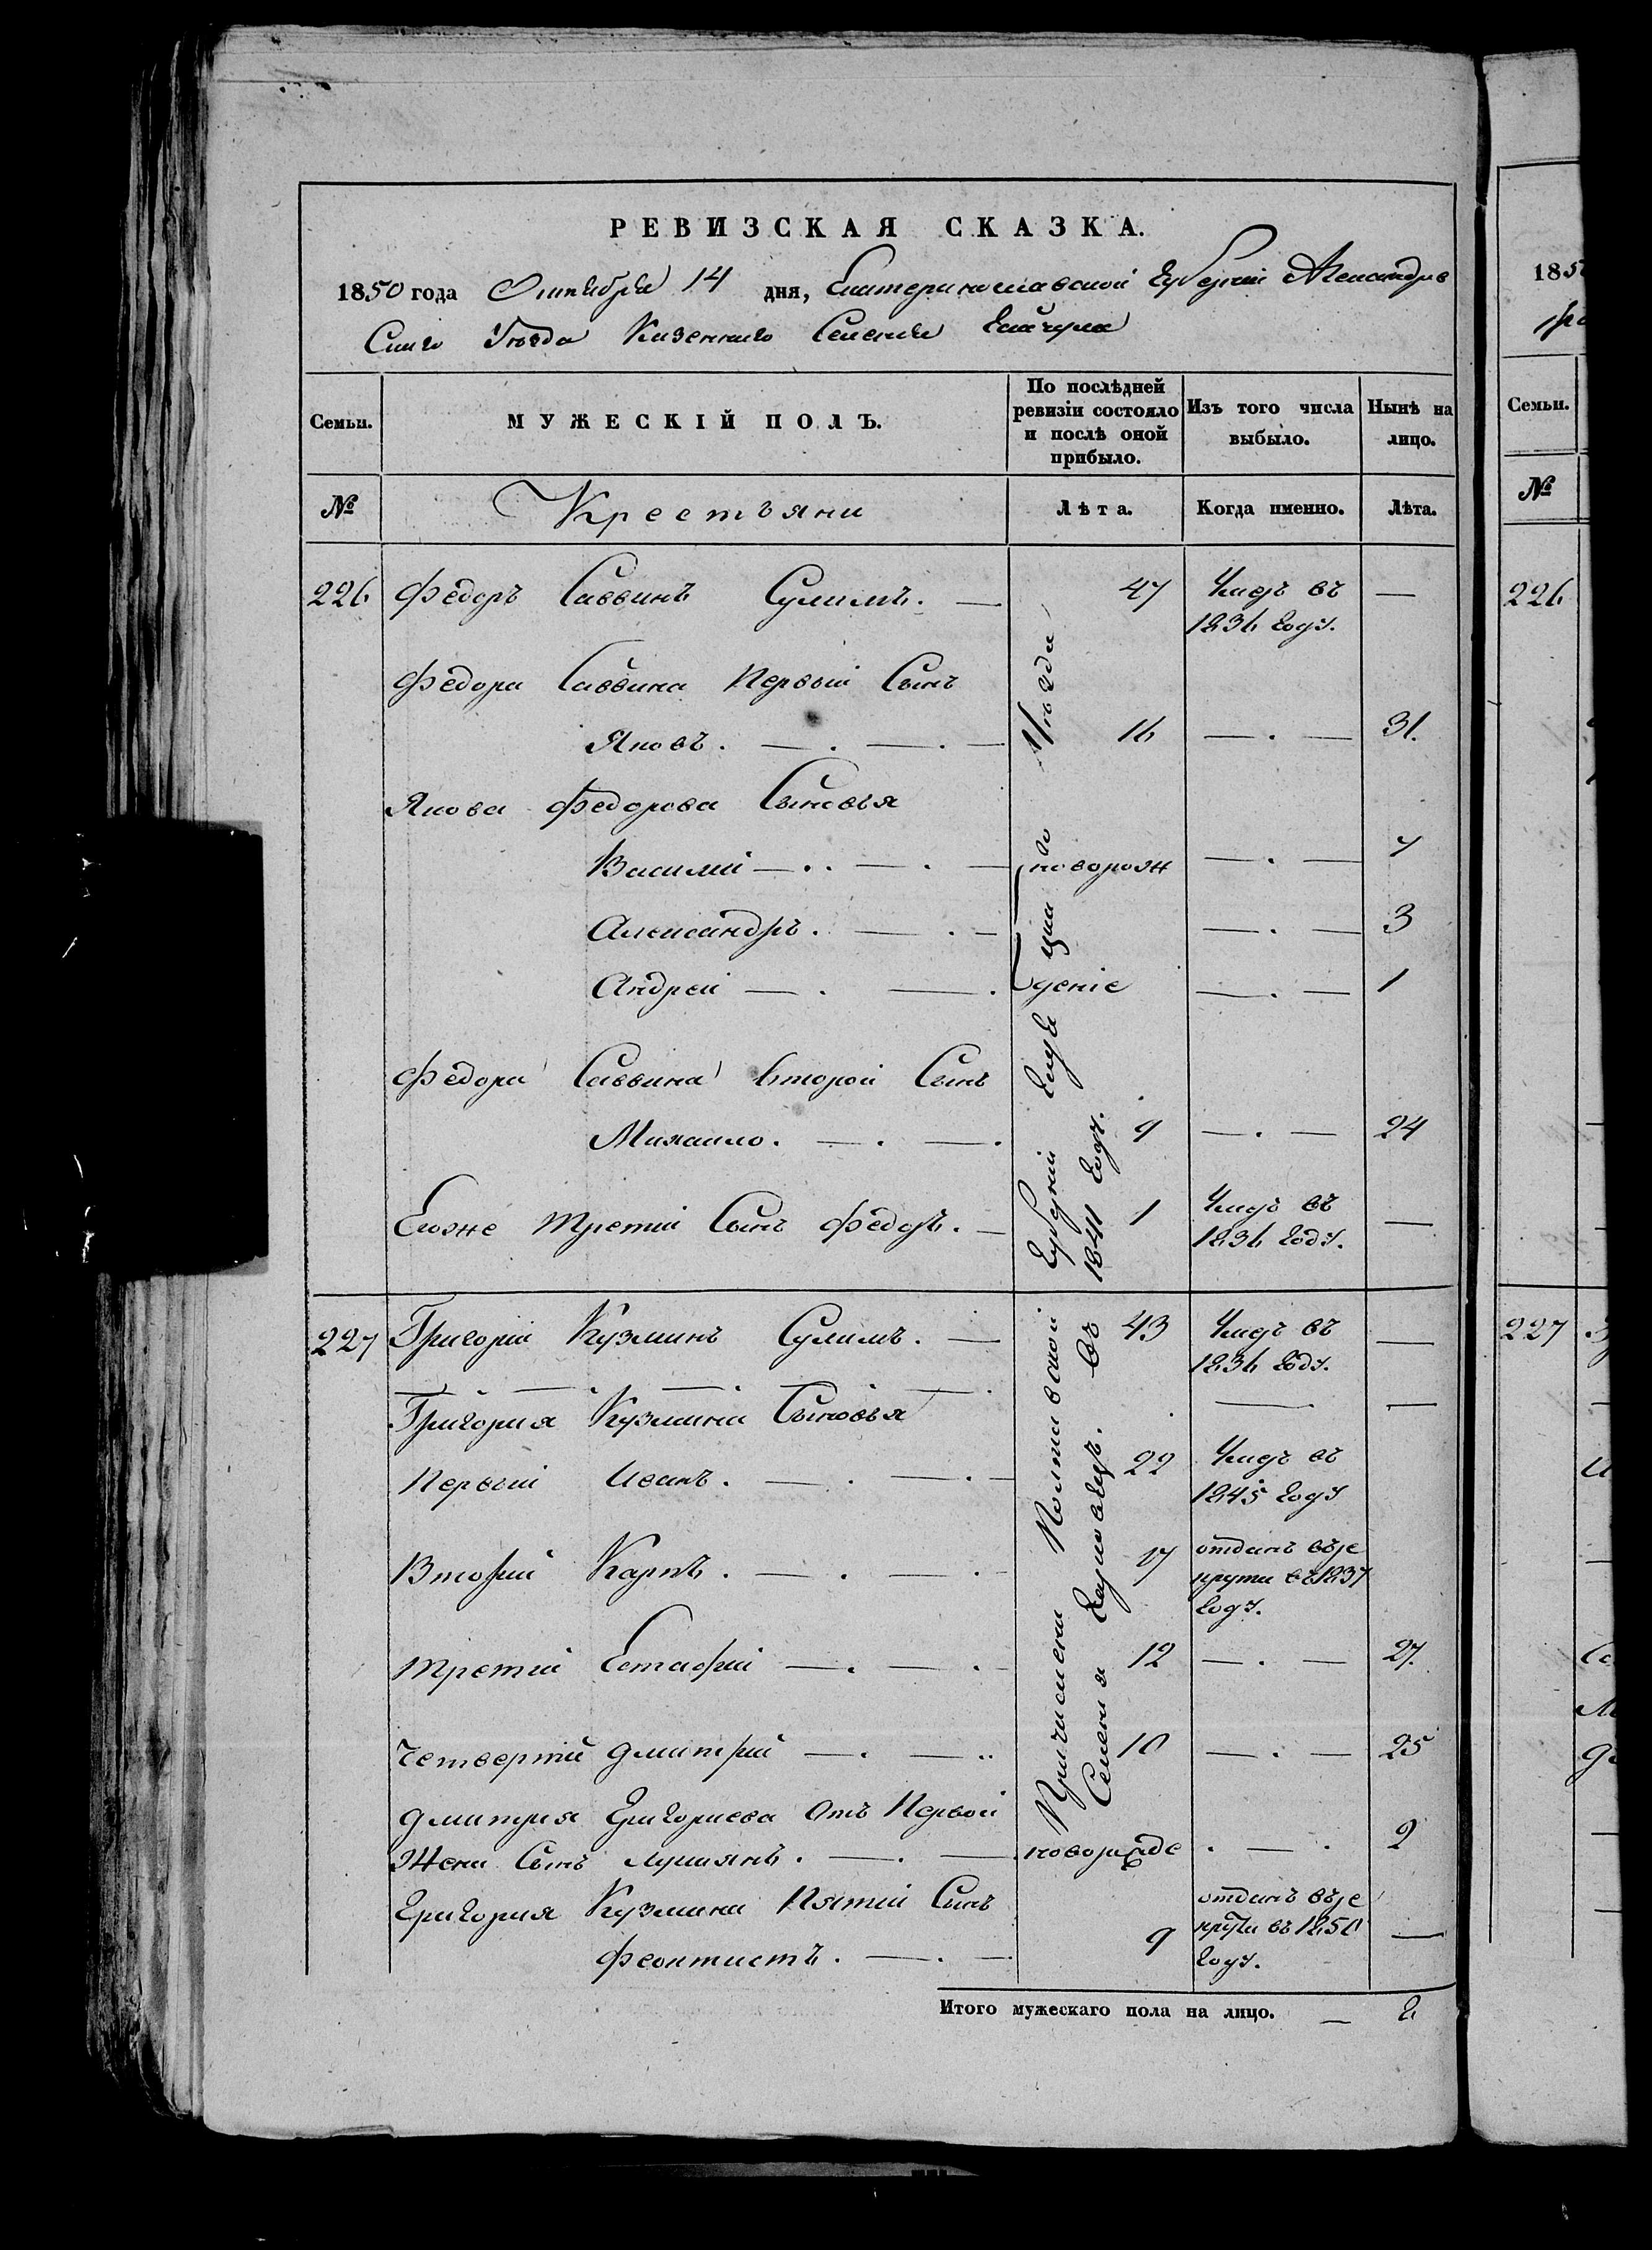 РЕВИЗСКАЯ СКАЗКА.
1850 года Октября 14 дня, Екатеринославской Губерніи Александров
Скаго Уезда Казеннаго Селенія Гайчула
Семьи.
МУЖЕСКІЙ ПОЛЪ.
По послѣдней ревизіи состояло и послѣ оной прибыло.
Изъ того числа выбыло.
Нынѣ на лицо.
№
Крестьяни
Лѣта.
Когда именно.
Лѣта.
226 Федоръ Саввинъ Сулимъ. — 47 Умеръ въ 1836 году. —
Федора Саввина Первый Сынъ
Яковъ. — . — . — 16 — . — 31.
Якова Федорова Сыновья
Василий — . . — . — новорож — . — 7
Александръ. — . — — . — 3
Андрей — . — . деніе — . — 1
Федора Саввина второй Сынъ
Михаило. — . — . 9 — . — 24
Егоже третій Сынъ Федоръ. — 1 Умеръ въ 1836 году. —
227 Григорій Кузминъ Сулимъ. — 43 Умеръ въ 1836 году. —
Григория Кузмина Сыновья — —
Первый Иванъ. — . — . — 22 Умеръ въ 1845 году
Вторий Карпъ. — . — . 17 отданъ въ рекрути въ 1837 году.
третій Естафий — . — . 12 — . — 27.
четвертий Дмитрий — . — .. 10 — . — 25
Дмитрия Григориева отъ Первой
Жени Сынъ Лукиянъ. — . — новорожде . — . 2
Григория Кузмина Пятий Сынъ
Феоктистъ. — . — 9 отданъ въ рекрути въ 1850 году. —
Причислени Полтавской Губерніи Гадя цкаго Уезда
Селения въ 1841 году.
Итого мужескаго пола на лицо. —
1850
Семьи.
№
226
227